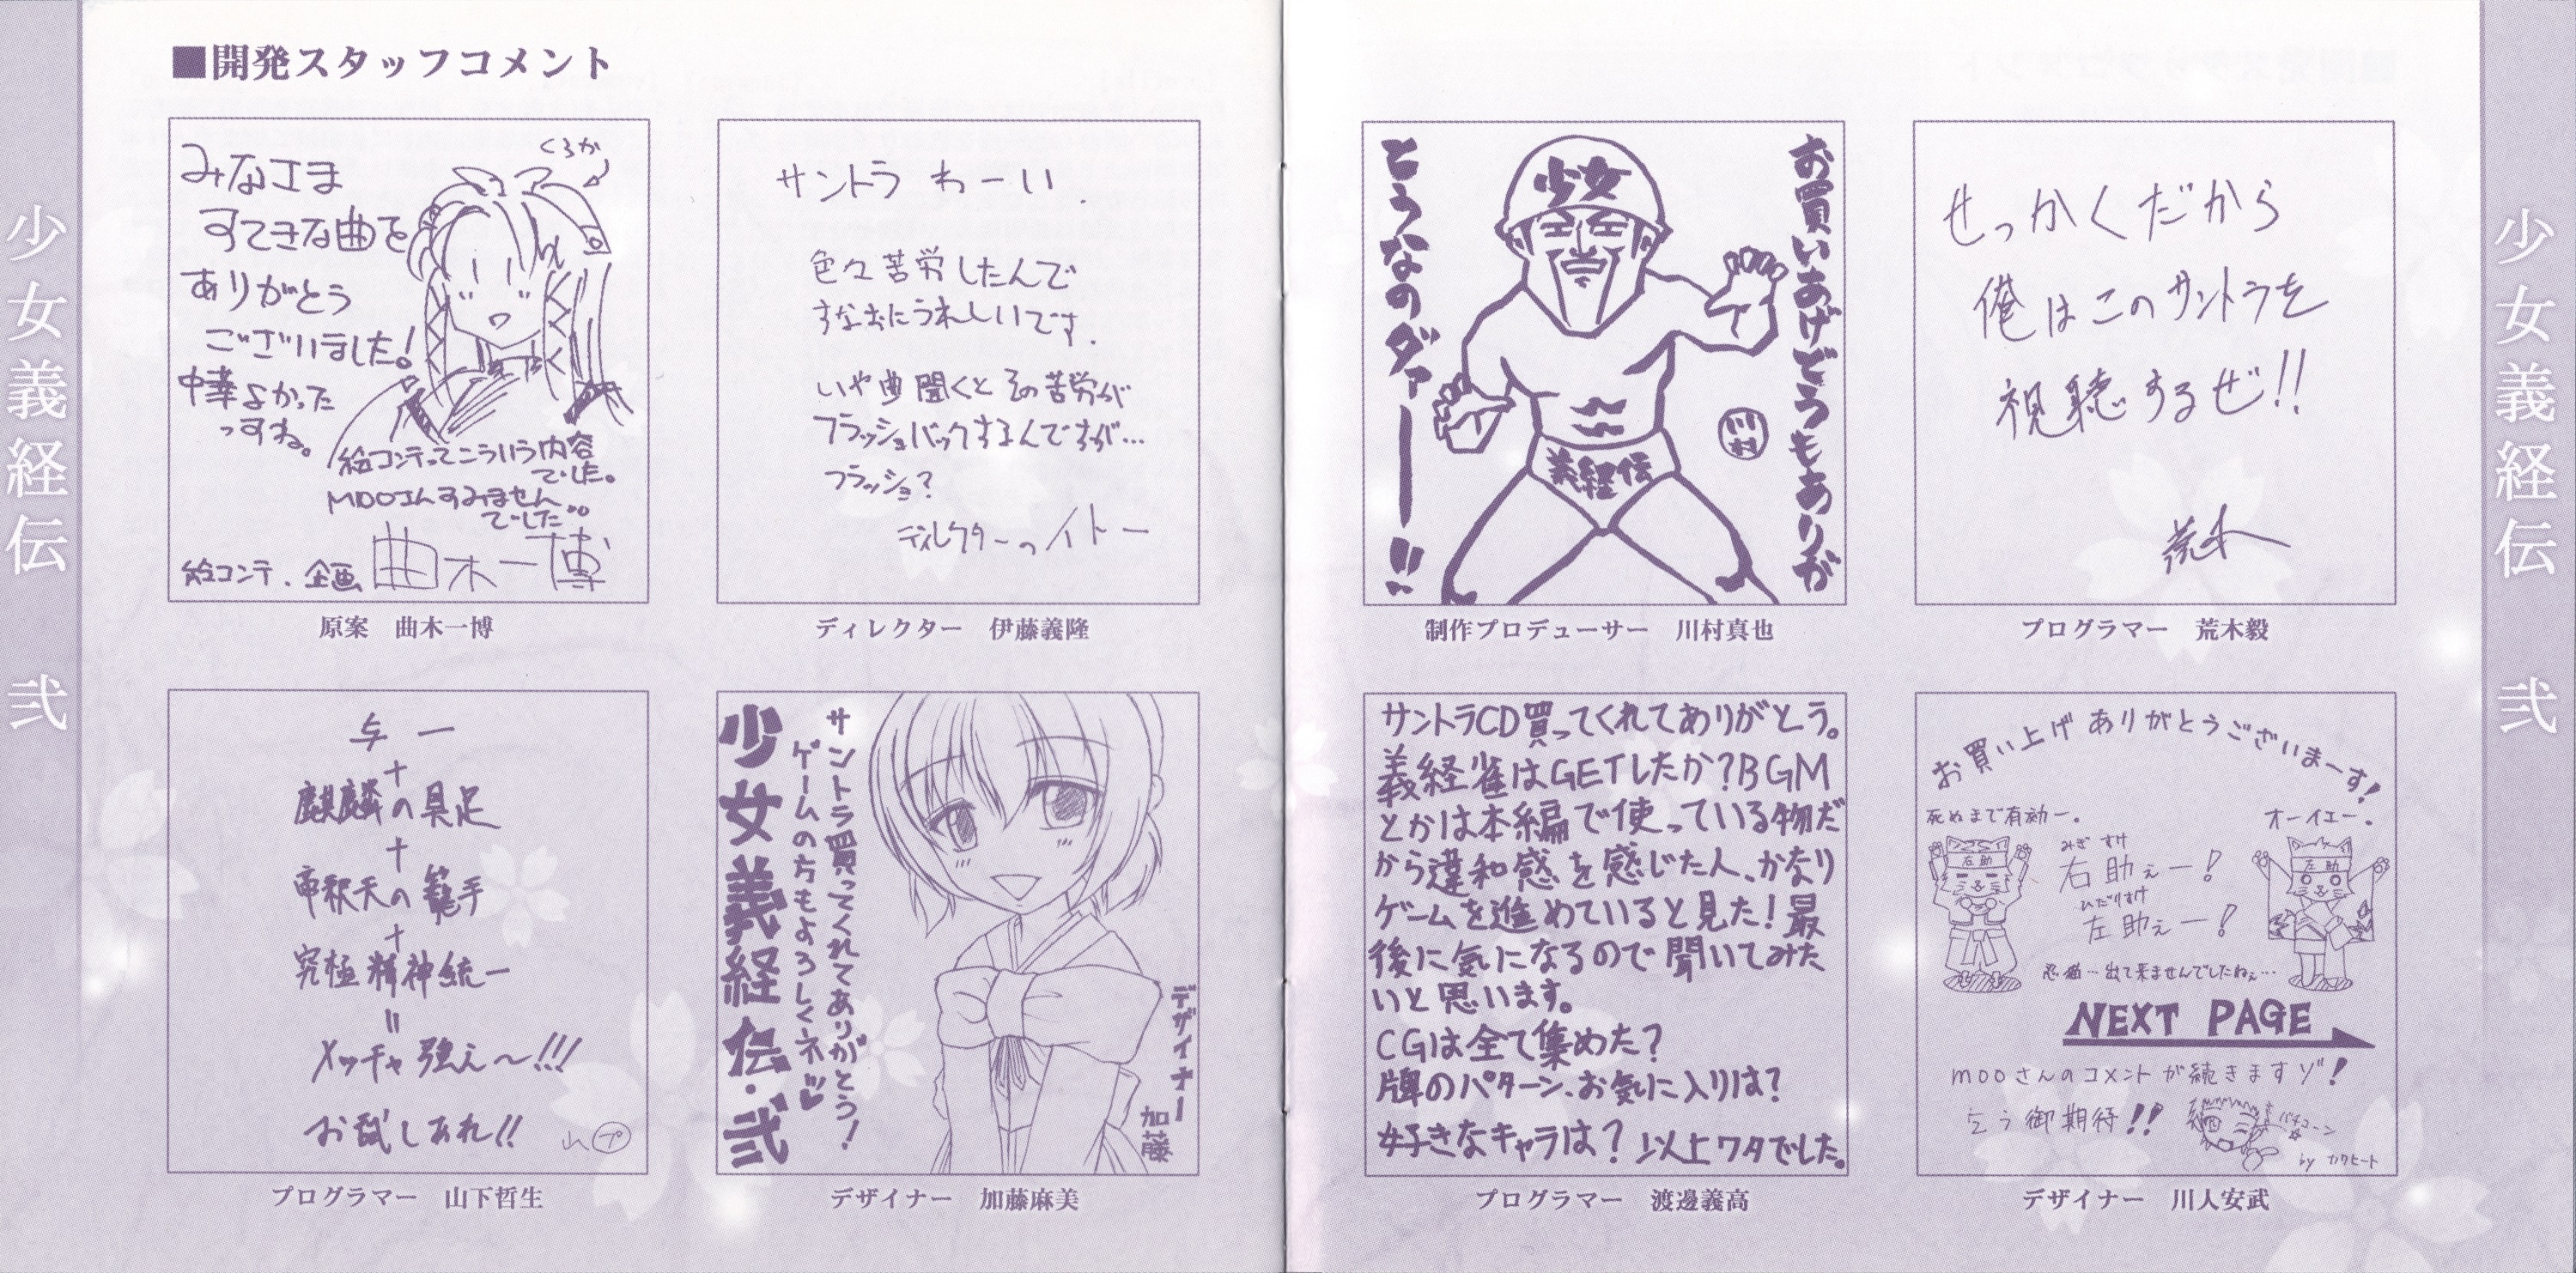 少女義経伝 弐
■開発スタッフコメント
くろか
みなさま
すてきな曲を
ありがとう
ございました!
中華よかった
っすね。
絵コンテってこういう内容
でした。
MOOさんすみません
でした。
絵コンテ.企画 曲木一博
原案 曲木一博
サントラ わーい
色々苦労したんで
すなおにうれしいです.
いや曲聞くとその苦労が
フラッシュバックするんですが…
フラッシュ?
ディレクターのイトー
ディレクター 伊藤義隆
与一
+
麒麟の具足
+
帝釈天の籠手
+
究極精神統一
=
メッチャ強え〜!!!
お試しあれ!!
山プ
プログラマー 山下哲生
サントラ買ってくれてありがとう!
ゲームの方もよろしくネッ♥
少女義経伝・弐
デザイナー
加藤
デザイナー 加藤麻美
お買いあげどうもありが
とうなのダァー!!
少女
義経伝
川村
制作プロデューサー 川村真也
せっかくだから
俺はこのサントラを
視聴するぜ!!
荒木
プログラマー 荒木毅
サントラCD買ってくれてありがとう。
義経雀はGETしたか?BGM
とかは本編で使っている物だ
から違和感を感じた人、かなり
ゲームを進めていると見た!最
後に気になるので聞いてみた
いと思います。
CGは全て集めた?
牌のパターン、お気に入りは?
好きなキャラは?以上ワタでした。
プログラマー 渡邊義高
お買い上げありがとうございまーす!
死ぬまで有効ー。
オーイエー。
左助
左助
みぎすけ
右助ぇー!
ひだりすけ
左助ぇー!
忍猫…出て来ませんでしたねぇ…
NEXT PAGE
MOOさんのコメントが続きますゾ!
乞う御期待!!
バチコーン
by カワヒート
デザイナー 川人安武
少女義経伝 弐